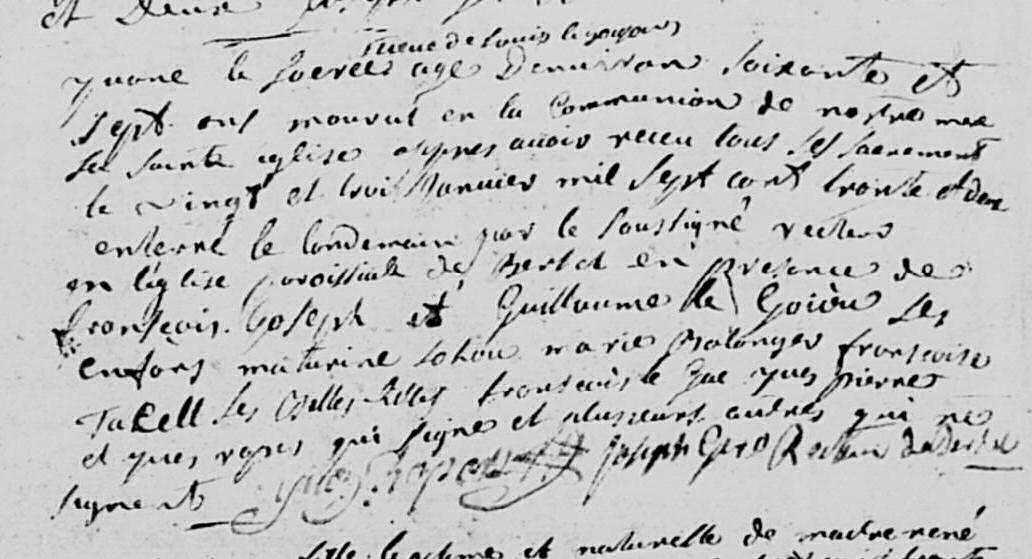 et Deux Joseph
veuve de Louis le
yvone le age Denviron soixante et
sept ans mourut en la Communion de nostre mere
la sainte eglise appres avoir receu tous les sacrement
le vingt et trois Janvier mil sept cent trente et deux
enterré le landemain par le soussigné recteur
en l'eglise paroissiale de en presence de
francois Joseph et Guillaume le les
enfans maturine Lohou marie francoise
les belles filles francois le yves pierres
et yves ropers qui signe et plusieurs autres qui ne
signent Joseph Recteur de
fille legitime et naturelle de maitre rené